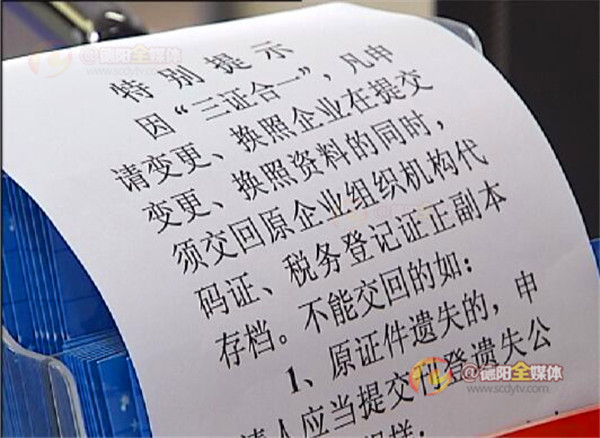 @德阳全媒体
www.scdytv.com
特别提示
因“三证合一”，凡申
请变更、换照企业在提交
变更、换照资料的同时，
须交回原企业组织机构代
码证、税务登记证正副本
存档。不能交回的如：
1、原证件遗失的，申
请人应当提交刊登遗失公
@德阳全媒体
www.scdytv.com